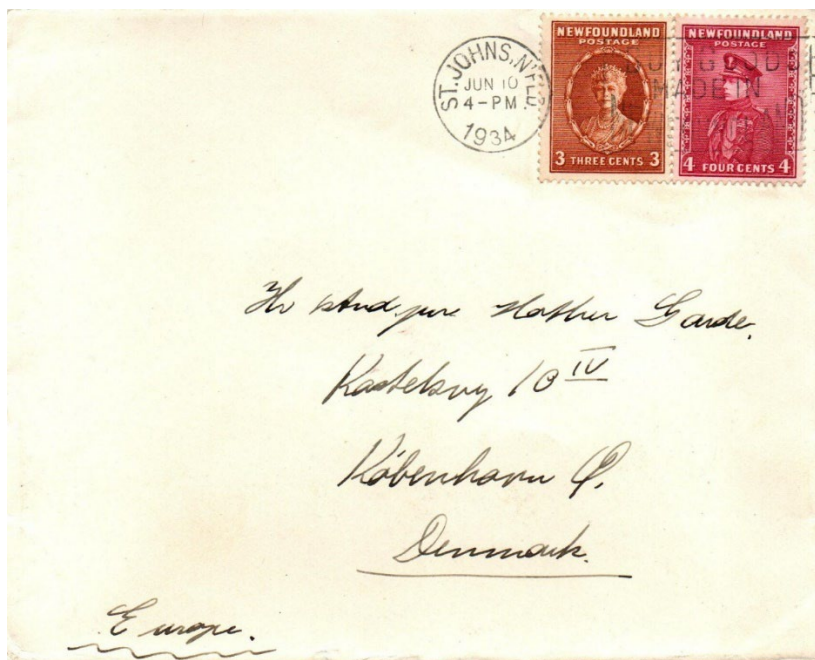 ST. JOHNS, N'FLD.
JUN 10
4-PM
1934
NEWFOUNDLAND
POSTAGE
3 THREE CENTS 3
NEWFOUNDLAND
POSTAGE
4 FOUR CENTS 4
GOODS
MADE IN
Hr stud. jur. Garde.
Kastelsvej IV
København Ø.
Denmark.
Europe.